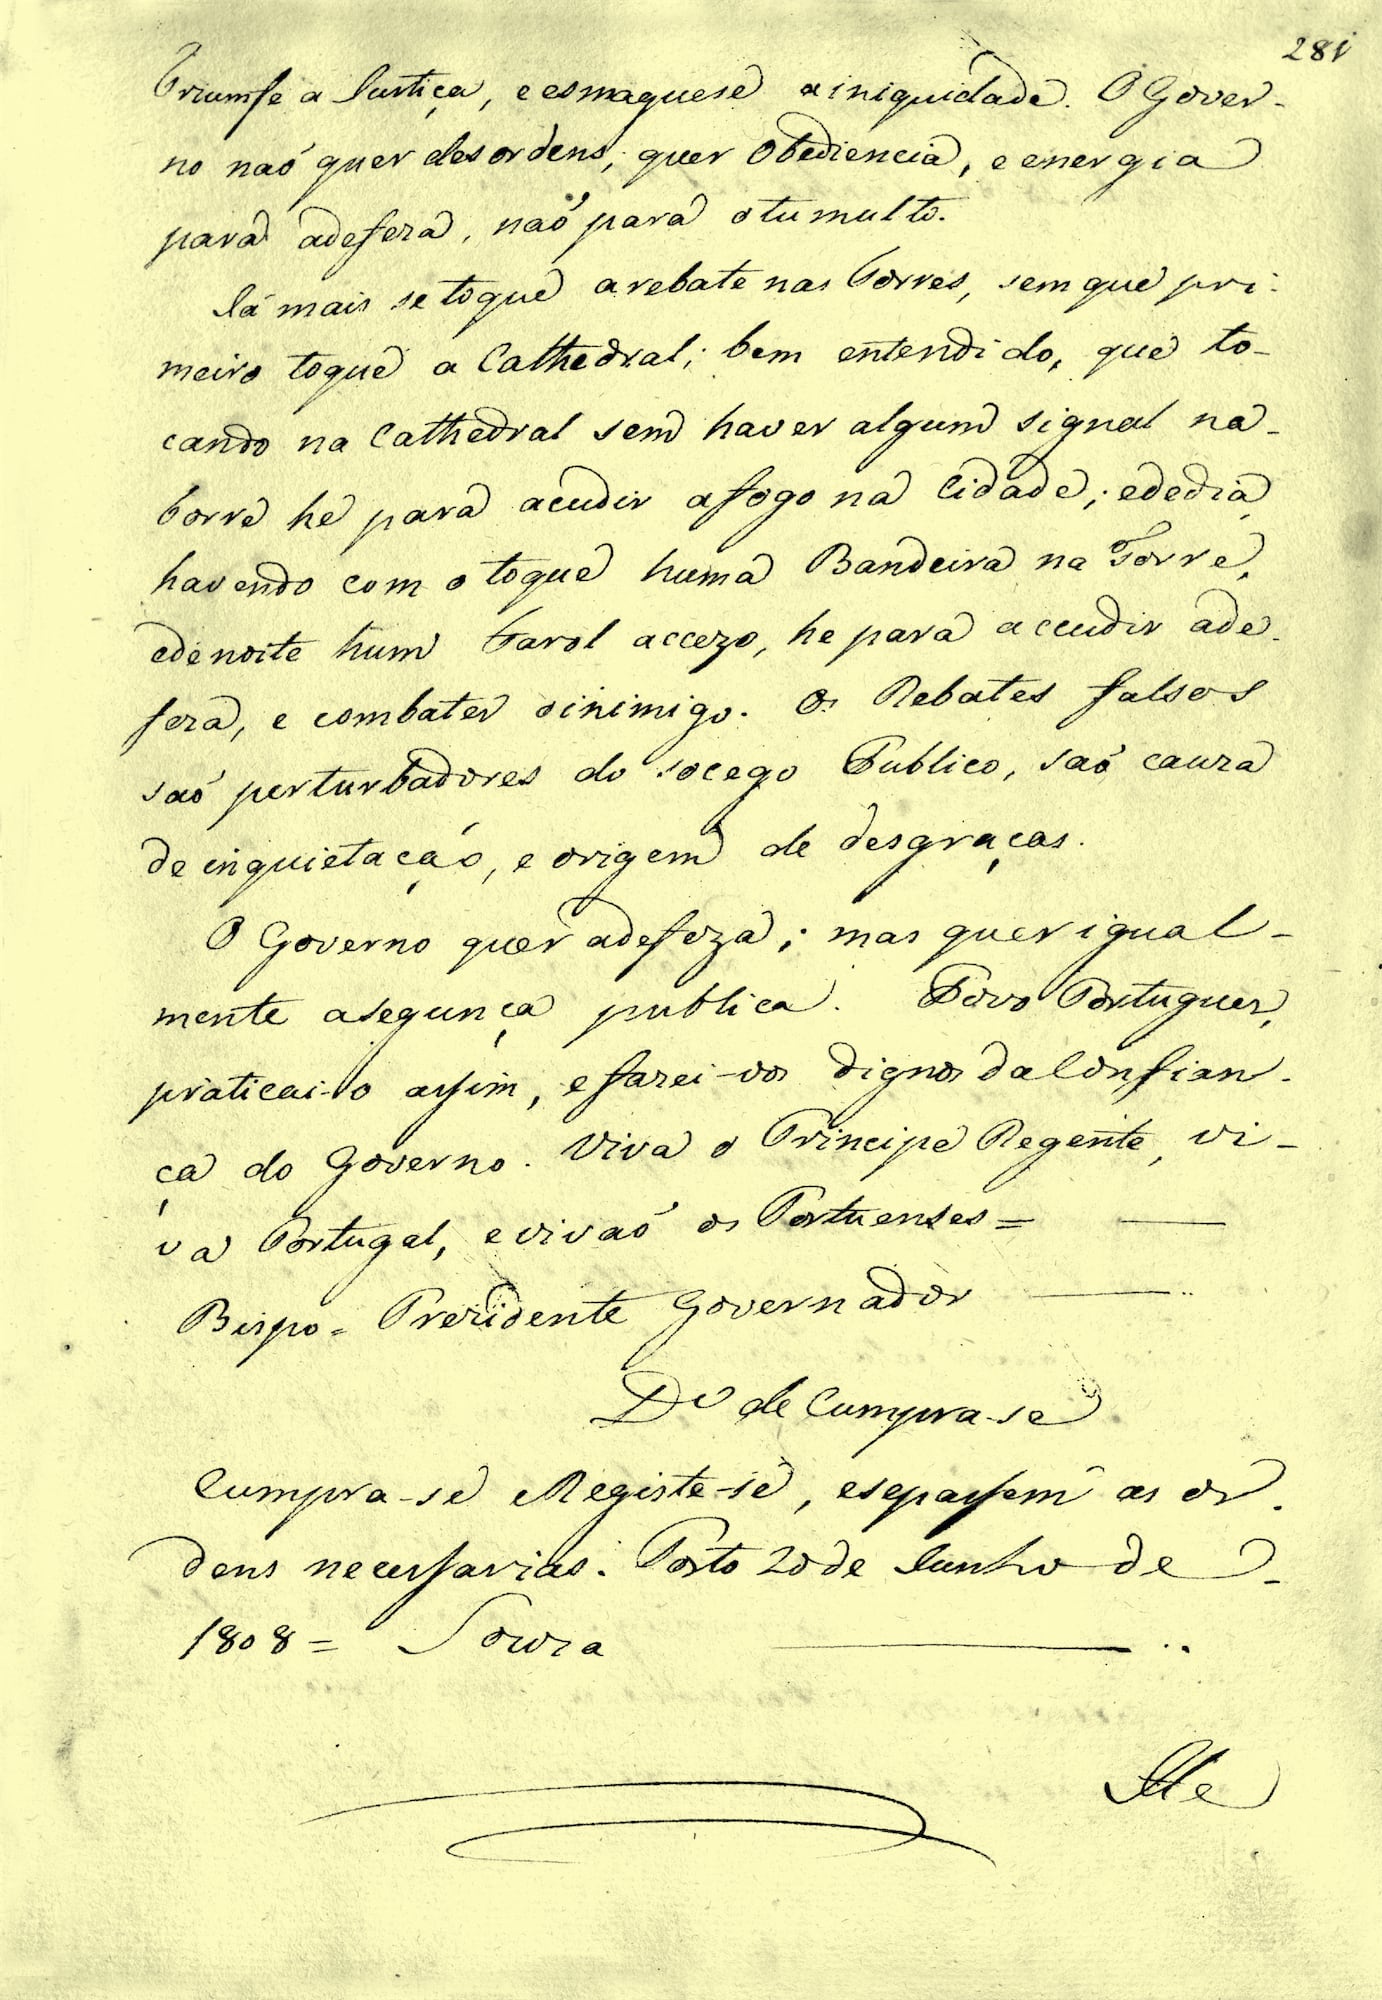 281
Triumfe a Justiça, e esmaguese a iniquidade. O Gover-
no naõ quer desordens, quer obediencia, e energia
para adefeza, naõ para otumulto.
Já mais se toque arebate nas torres, sem que pri-
meiro toque a Cathedral; bem entendido, que to-
cando na Cathedral sem haver algum signal na
torre he para acudir afogo na Cidade; ededia
havendo com o toque huma Bandeira na Torre,
edenoite hum Farol accezo, he para accudir ade-
feza, e combater oinimigo. Os Rebates falsos
saõ perturbadores do socego Publico, saõ cauza
de inquietaçaõ, e origem de desgraças.
O Governo quer adefeza; mas quer igual-
mente asegunça publica. Povo Portuguez,
praticai-o assim, efazei-vos dignos da Confian-
ça do Governo. Viva o Principe Regente, vi-
va Portugal, evivaõ os Portuenses =
Bispo = Prezidente Governador
Do de Cumpra-se
Cumpra-se Registe-se, esepassem as or-
dens necessarias. Porto 20 de Junho de
1808 = Souza